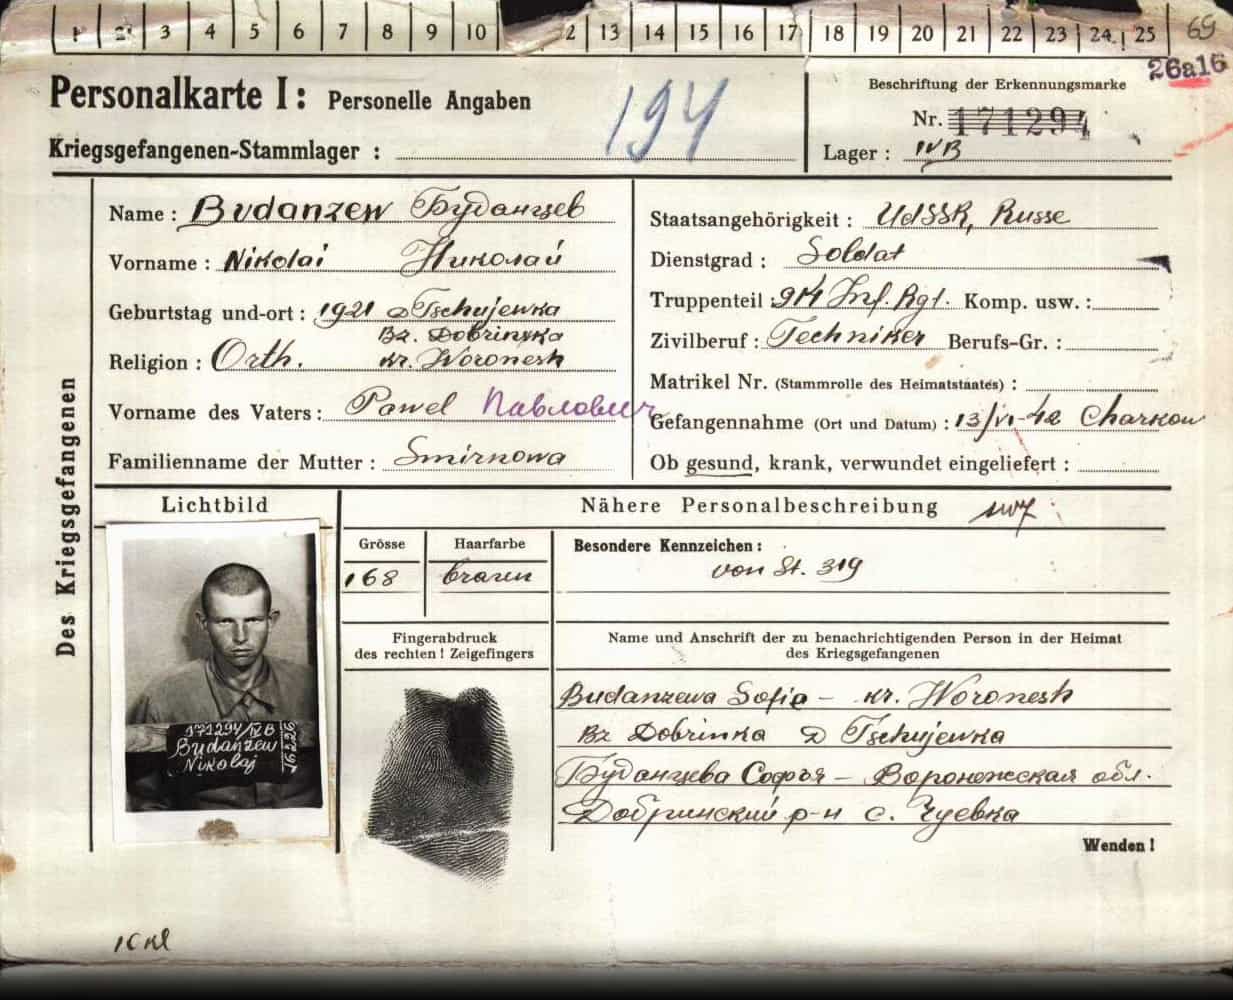 1 2 3 4 5 6 7 8 9 10 2 13 14 15 16 17 18 19 20 21 22 23 24 25 69
26a16
Personalkarte I: Personelle Angaben
194
Beschriftung der Erkennungsmarke
Nr. 171294
Kriegsgefangenen-Stammlager :
Lager : IVB
Des Kriegsgefangenen
Name : Budanzew Буданцев
Vorname : Nikolai Николай
Geburtstag und-ort : 1921 D Tschujewka
Bz. Dobrinka
Religion : Orth. kr. Woronesh
Vorname des Vaters : Pawel Павлович
Familienname der Mutter : Smirnowa
Staatsangehörigkeit : UdSSR, Russe
Dienstgrad : Soldat
Truppenteil : 914 Inf. Rgt. Komp. usw. :
Zivilberuf : Techniker Berufs-Gr. :
Matrikel Nr. (Stammrolle des Heimatstaates) :
Gefangennahme (Ort und Datum) : 13/VI-42 Charkow
Ob gesund, krank, verwundet eingeliefert :
Lichtbild
Nähere Personalbeschreibung
Grösse Haarfarbe
168 braun
Besondere Kennzeichen :
von St. 319
Fingerabdruck
des rechten ! Zeigefingers
Name und Anschrift der zu benachrichtigenden Person in der Heimat
des Kriegsgefangenen
Budanzewa Sofia – kr. Woronesh
Bz Dobrinka D Tschujewka
Буданцева Софья – Воронежская обл.
Добринский р-н с. Чуевка
Wenden !
171294/IVB
Budanzew
Nikolaj
16226